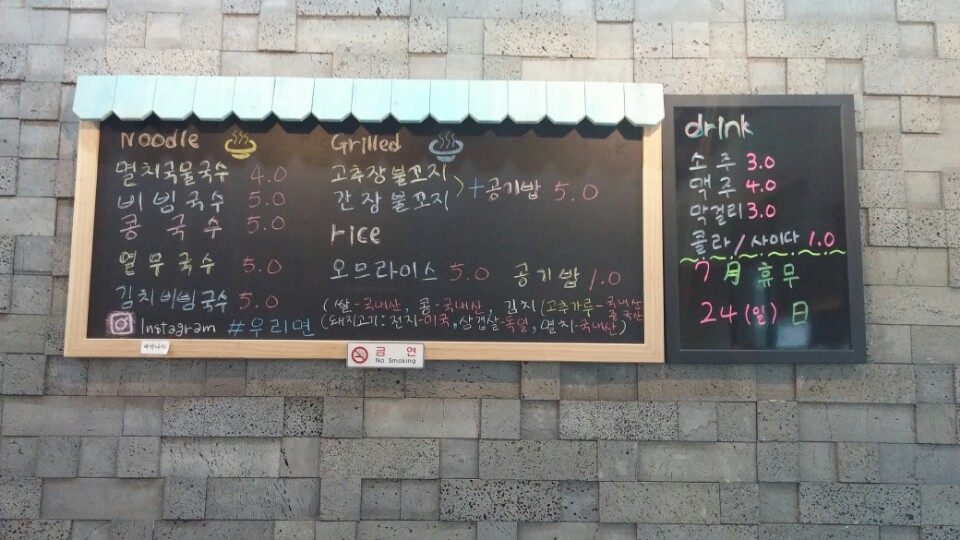 Noodle
멸치국물국수 4.0
비빔국수 5.0
콩국수 5.0
열무국수 5.0
김치비빔국수 5.0
Instagram #우리면
Grilled
고추장불꼬지
간장불꼬지 +공기밥 5.0
rice
오므라이스 5.0 공기밥 1.0
(쌀-국내산, 콩-국내산, 김치(고추가루-국내산 중국산
(돼지고기: 전지-미국, 삼겹살-독일, 멸치-국내산)
금연
No Smoking
drink
소주 3.0
맥주 4.0
막걸리 3.0
콜라/사이다 1.0
7月 휴무
24(일) 日